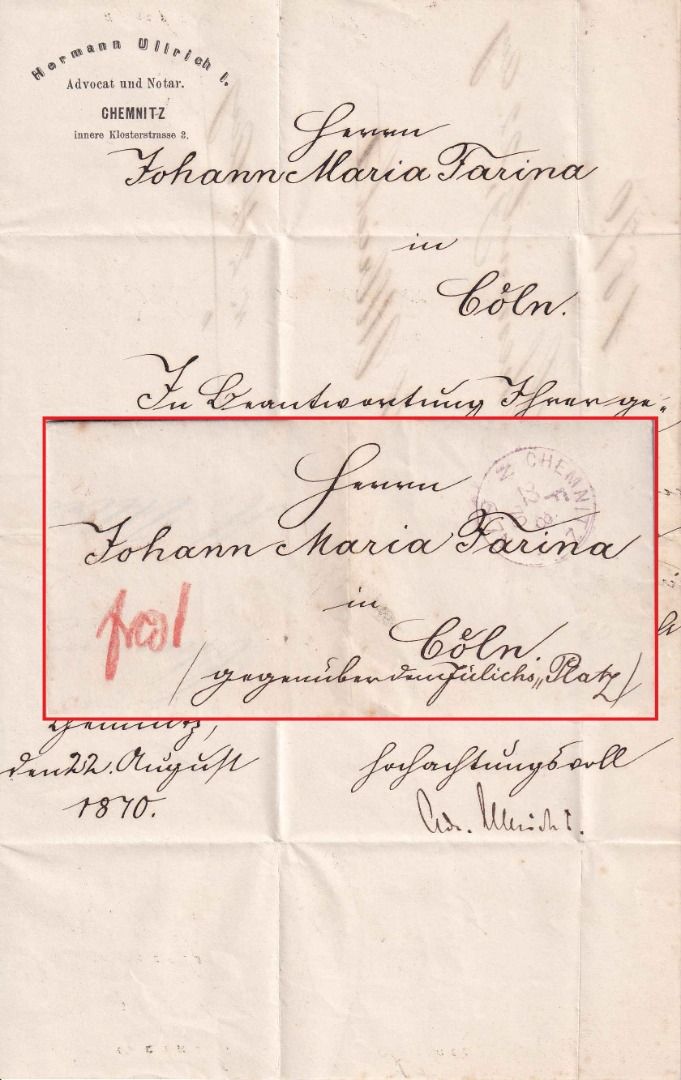 Hermann Ullrich I.
Advocat und Notar.
CHEMNITZ
innere Klosterstrasse 3.
Herrn
Johann Maria Farina
in
Cöln.
In Beantwortung Ihrer ge-
CHEMNITZ
Herrn
Johann Maria Farina
in
Cöln.
(gegenüber dem Jülichs„Platz)
Chemnitz,
den 22. August
1870.
Hochachtungsvoll
Adv. Ullrich I.